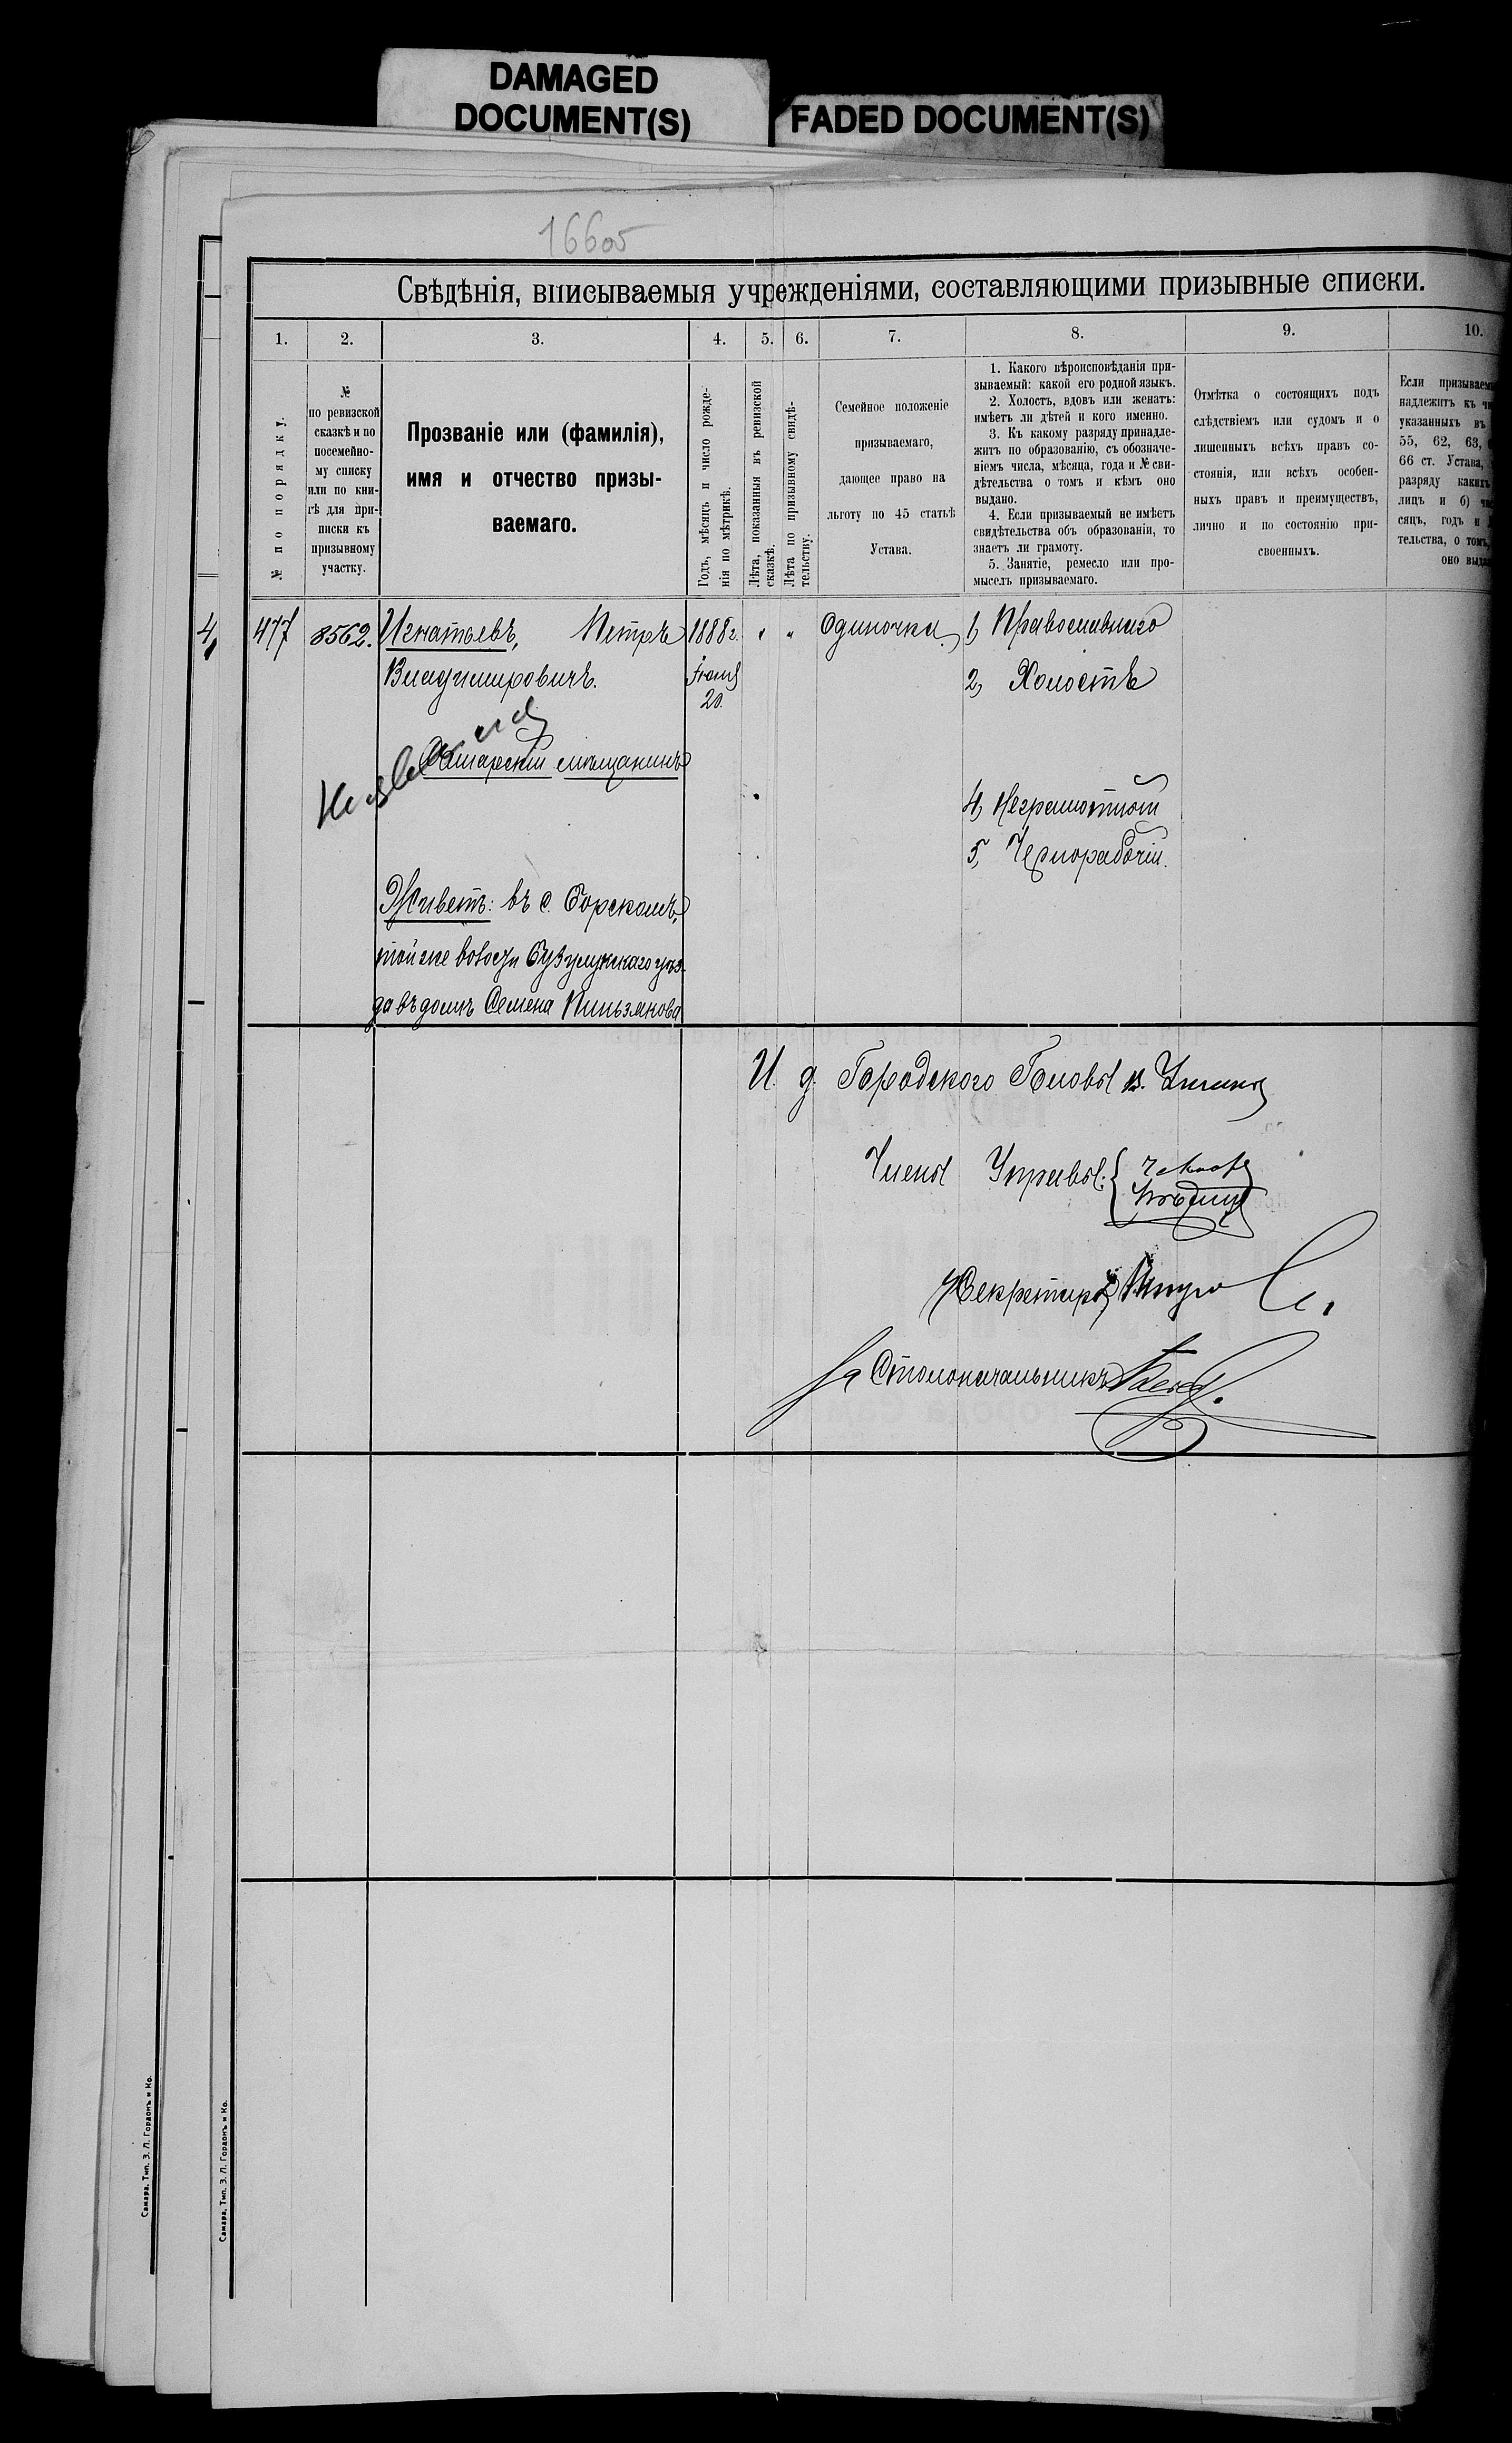 DAMAGED
DOCUMENT(S)
FADED DOCUMENT(S)
Свѣдѣнія, вписываемыя учрежденіями, составляющими призывные списки.
1. 2. 3. 4. 5. 6. 7. 8. 9. 10.
№ по порядку.
№
по ревизской
сказкѣ и по
посемейно-
му списку
или по кни-
гѣ для при-
писки къ
призывному
участку.
Прозваніе или (фамилія),
имя и отчество призы-
ваемаго.
Годъ, мѣсяцъ и число рожде-
нія по метрикѣ.
Лѣта, показанныя въ ревизской
сказкѣ.
Лѣта по призывному свидѣ-
тельству.
Семейное положеніе
призываемаго,
дающее право на
льготу по 45 статьѣ
Устава.
1. Какого вѣроисповѣданія при-
зываемый: какой его родной языкъ.
2. Холостъ, вдовъ или женатъ:
имѣетъ ли дѣтей и кого именно.
3. Къ какому разряду принадле-
житъ по образованію, съ обозначе-
ніемъ числа, мѣсяца, года и № сви-
дѣтельства о томъ и кѣмъ оно
выдано.
4. Если призываемый не имѣетъ
свидѣтельства объ образованіи, то
знаетъ ли грамоту.
5. Занятіе, ремесло или про-
мыселъ призываемаго.
Отмѣтка о состоящихъ подъ
слѣдствіемъ или судомъ и о
лишенныхъ всѣхъ правъ со-
стоянія, или всѣхъ особен-
ныхъ правъ и преимуществъ,
лично и по состоянію при-
своенныхъ.
Если
надлежитъ къ
указанныхъ въ
55, 62, 63,
66 ст. Устава,
разряду
лицъ и б)
сяцъ, годъ и
тельства, о томъ,
оно
4 477 8562. Игнатьевъ, Петръ 1888г. " " Одиночка. 1, Православнаго
Владимировичъ. 20. 2, Холостъ
Самарскій мѣщанинъ
4, Неграмотный
5, Чернорабочій.
Живетъ: въ с. Борскомъ,
той же волости Бузулукскаго уѣз-
да въ домѣ Семена
И. д. Городского Головы
Члены Управы:
Секретарь
За Столоначальникъ
Самара, Тип. З. Л. Гордонъ и Ко.
Самара, Тип. З. Л. Гордонъ и Ко.